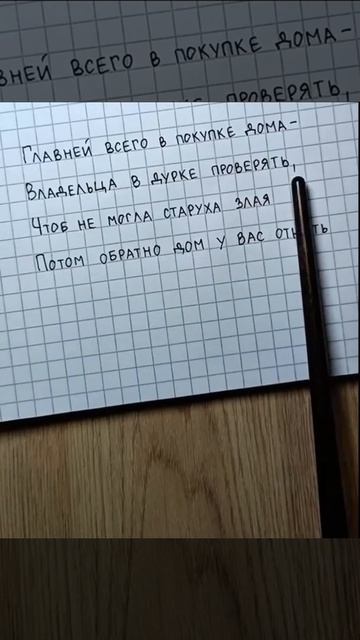 ВНЕЙ ВСЕГО В ПОКУПКЕ ДОМА-
ПРОВЕРЯТЬ,
ГЛАВНЕЙ ВСЕГО В ПОКУПКЕ ДОМА-
ВЛАДЕЛЬЦА В ДУРКЕ ПРОВЕРЯТЬ,
ЧТОБ НЕ МОГЛА СТАРУХА ЗЛАЯ
ПОТОМ ОБРАТНО ДОМ У ВАС